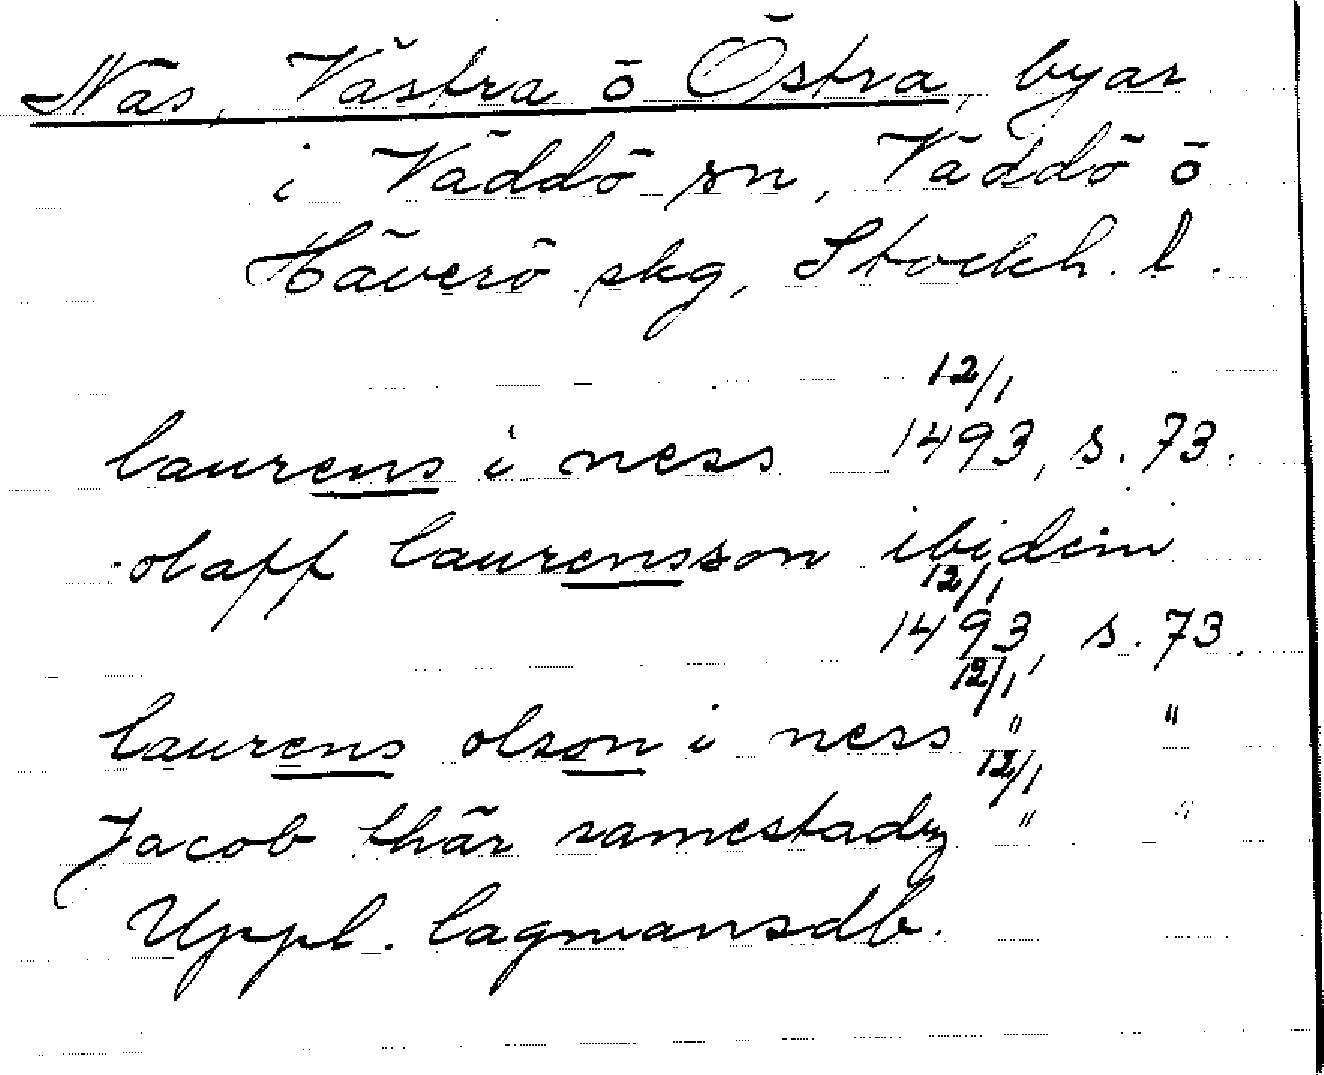 Näs, Västra o Östra, byar
i Väddö sn, Väddö o
Häverö skg, Stockh. l.
12/1
laurens i ness 1493, s. 73.
olaff laurensson ibidem
12/1
1493, s. 73.
12/1
laurens olson i ness " "
12/1
Jacob thär samestady " "
Uppl. lagmansdb.